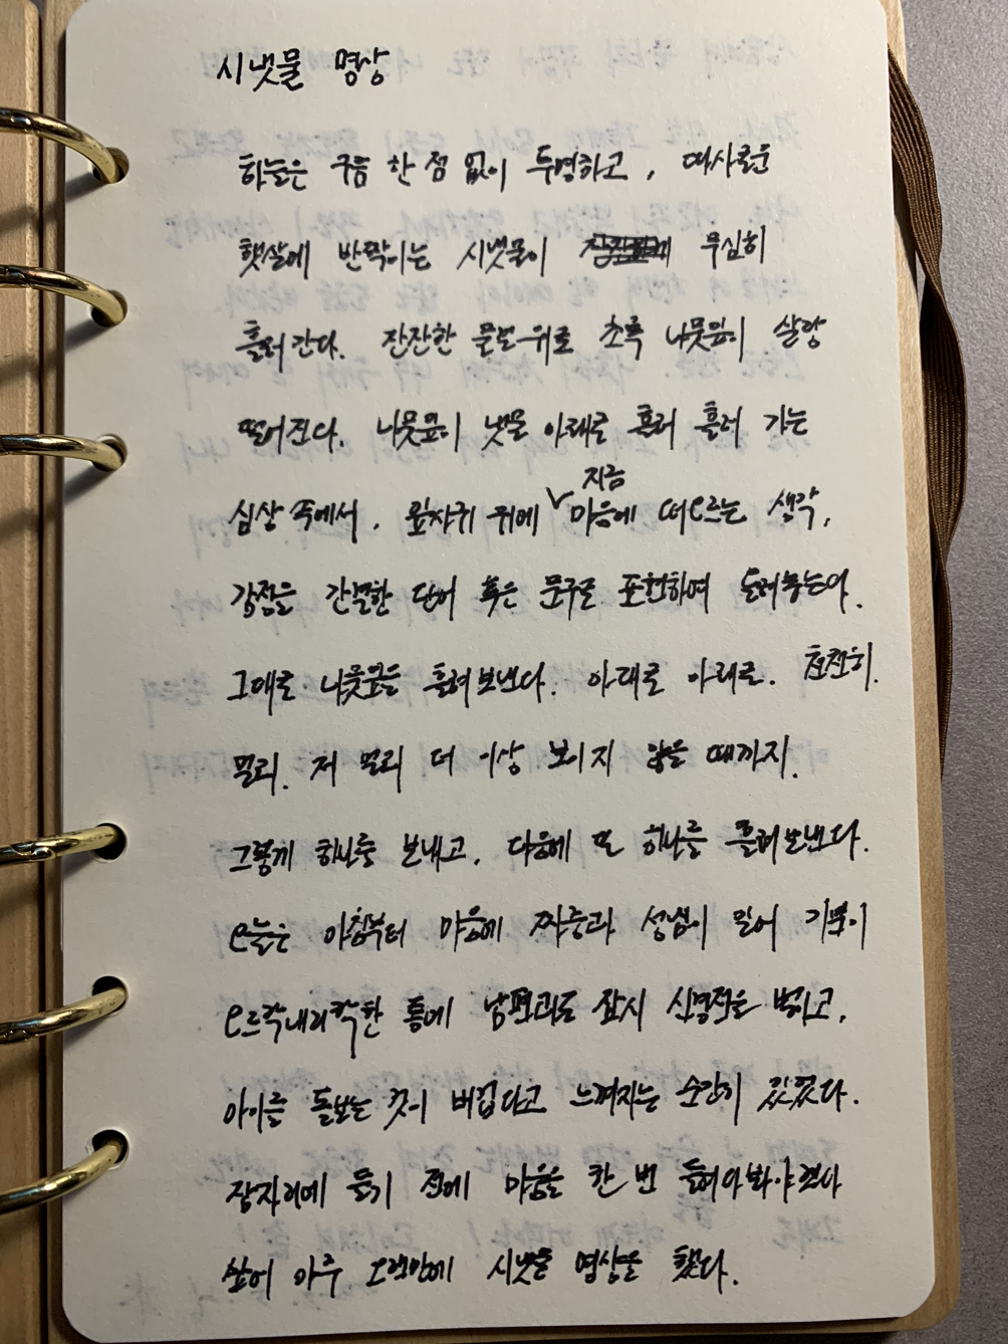 시냇물 명상
하늘은 구름 한 점 없이 투명하고, 따사로운
햇살에 반짝이는 시냇물이 무심히
흘러간다. 잔잔한 물보 위로 초록 나뭇잎이 살랑
떨어진다. 나뭇잎이 냇물 아래로 흘러 흘러 가는
심상 속에서, 잎사귀 위에 지금 마음에 떠오르는 생각,
감정을 간결한 단어 혹은 문구로 표현하여 올려놓는다.
그대로 나뭇잎을 흘려보낸다. 아래로 아래로. 천천히.
멀리. 저 멀리 더 이상 보이지 않을 때까지.
그렇게 하나를 보내고, 다음에 또 하나를 흘려보낸다.
오늘은 아침부터 마음에 짜증과 성냄이 일어 기분이
오르락내리락한 통에 남편과도 잠시 신경전을 벌이고,
아이를 돌보는 것이 버겁다고 느껴지는 순간이 있었다.
잠자리에 들기 전에 마음을 한 번 돌아봐야겠다
싶어 아주 오랜만에 시냇물 명상을 했다.